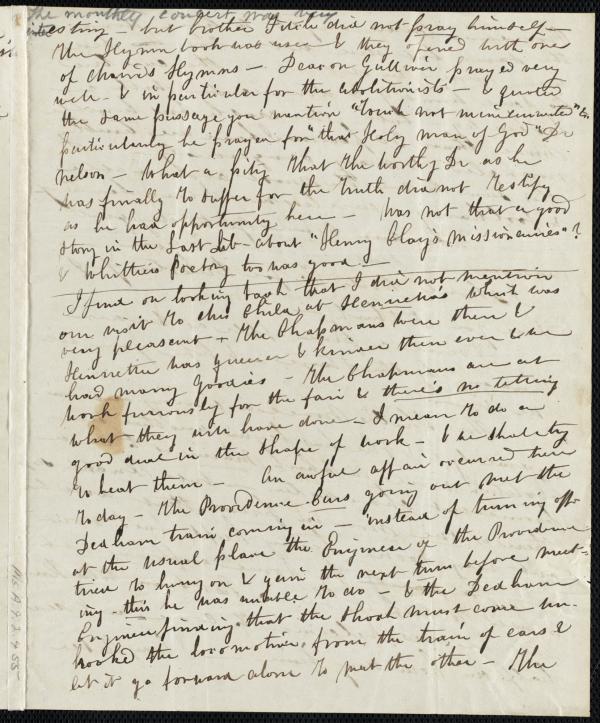 the monthly concert was very
inter
esting - but brother Fitch did not pray himself -
The Hymn book was used & they opened with one
of Chan's Hymns - Deacon Gulliver prayed very
well - & in particular for the abolitionists - & quoted
the same passage you mention "touch not mine anointed" &c
particularly he prayed for "that Holy man of God" Dr
Nelson - What a pity that the worthy Dr as he
was finally to suffer for the truth did not testify
as he had opportunity here - Was not that a good
story in the last Lib - about "Henry Clay's missionaries"?
& Whittiers Poetry too was good -
I find on looking back that I did not mention
our visit to Mrs Child at Henrietta's which was
very pleasant - The Chapmans were there &
Henrietta was queerer & kinder than ever & we
had many goodies - The Chapmans are at
work furiously for the fair & there's no telling
what they will have done - I mean to do a
good deal in the shape of work - & we shall try
to beat them - An awful affair occurred here
today - The Providence Cars going out met the
Dedham train coming in - instead of turning off
at the usual place the Engineer of the Providence
tried to hurry on & gain the next turn before meet-
ing - this he was unable to do - & the Dedham
Engineer finding that the shock must come un-
hooked the locomotive from the train of cars &
let it go forward alone to meet the other - The
Ms. A. 9. 2. 4. 55